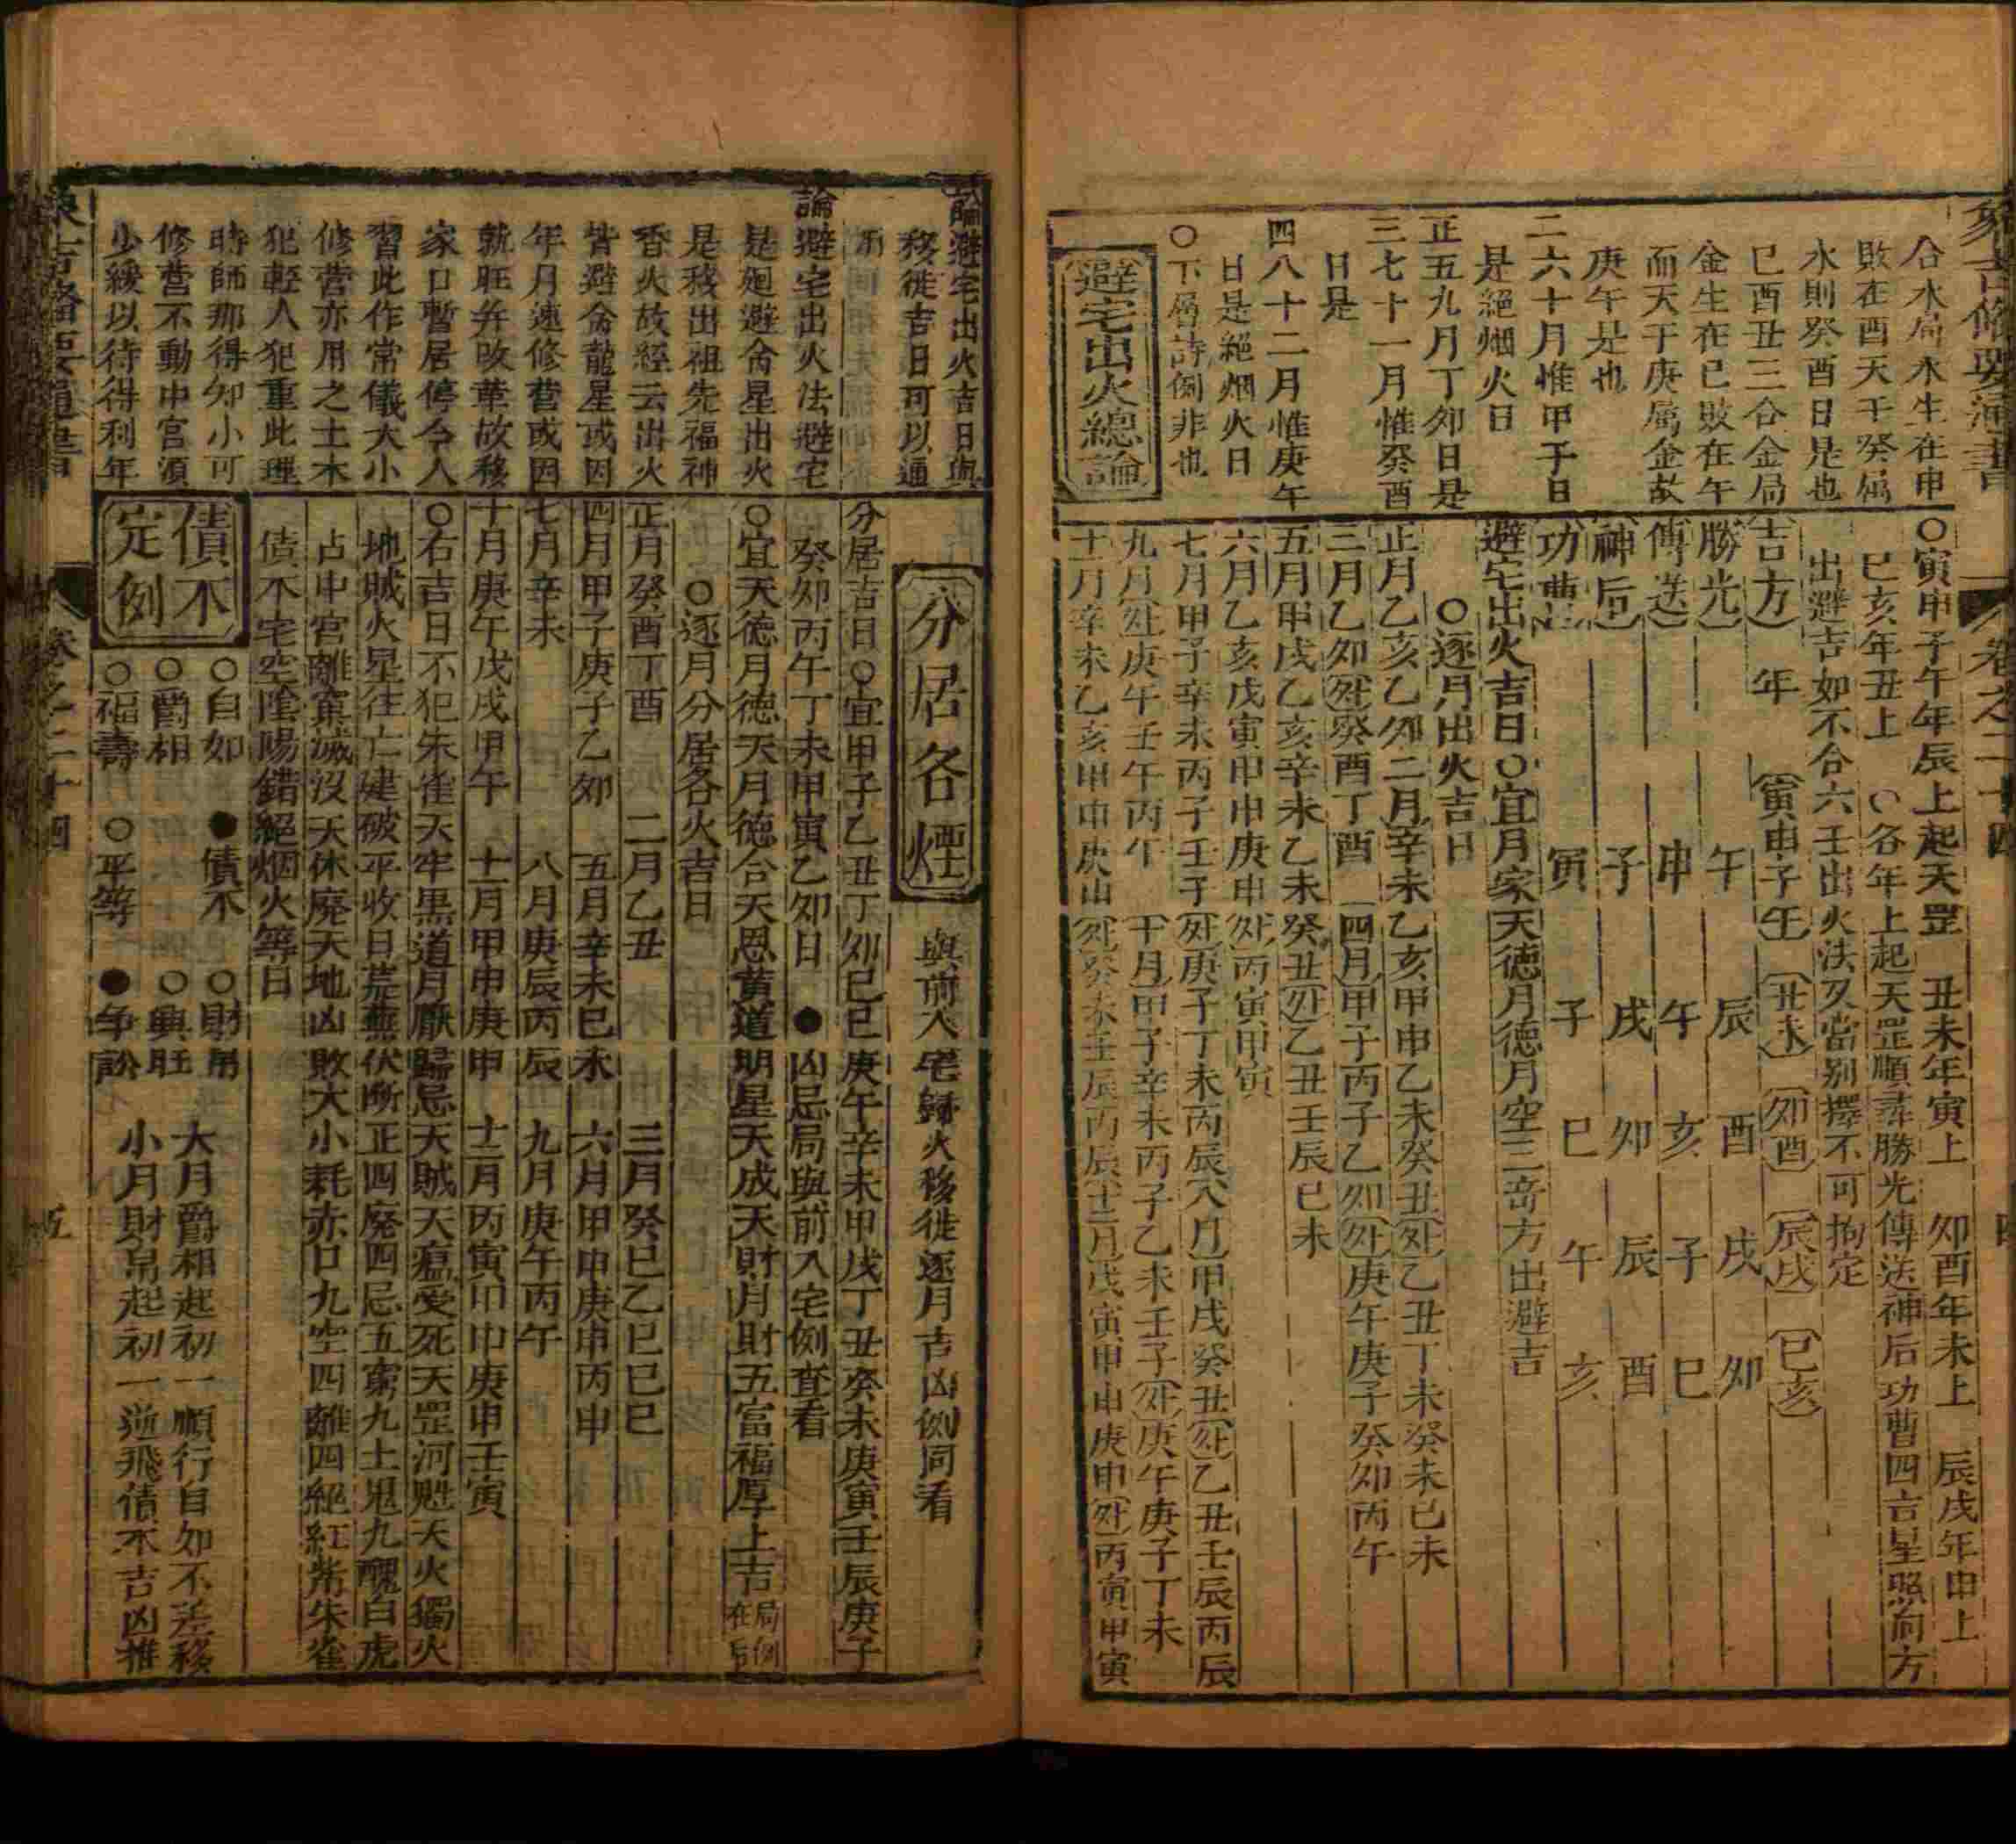 合水局水生在申
敗在酉天干癸屬
水則癸酉日是也
巳酉丑三合金局
金生在巳敗在午
而天干庚屬金故
庚午是也
二六十月惟甲子日
是絕烟火日
正五九月丁卯日是
三七十一月惟癸酉
日是
四八十二月惟庚午
日是絕烟火日
○下層詩例非也
避宅出火總論
○寅申子午年辰上起天罡 丑未年寅上 卯酉年未上 辰戌年申上
巳亥年丑上 ○各年上起天罡順尋勝光傳送神后功曹四吉星照向方
出避吉如不合六壬出火法又當别擇不可拘定
吉方 年 寅申子午 丑未 卯酉 辰戌 巳亥
勝光 午 辰 酉 戌 卯
傳送 申 午 亥 子 巳
神后 子 戌 卯 辰 酉
功曹 寅 子 巳 午 亥
避宅出火吉日○宜月家天德月德月空三奇方出避吉
○逐月出火吉日
正月乙亥乙卯二月辛未乙亥甲申乙未癸丑外乙丑丁未癸未己未
三月乙卯外癸酉丁酉 四月甲子丙子乙卯外庚午庚子癸卯丙午
五月甲戌乙亥辛未乙未癸丑外乙丑壬辰己未
六月乙亥戊寅甲申庚申外丙寅甲寅
七月甲子辛未丙子壬子外庚子丁未丙辰八月甲戌癸丑外乙丑壬辰丙辰
九月外庚午壬午丙午 十月甲子辛未丙子乙未壬子外庚午庚子丁未
十一月辛未乙亥甲申庚申外癸未壬辰丙辰十二月戊寅甲申庚申外丙寅甲寅
論避宅出火吉日與
移徙吉日可以通
論避宅出火法避宅
是廻避翕星出火
是移出祖先福神
香火故經云出火
皆避翕龍星或因
年月速修營或因
就旺弃敗華故移
家口暫居停令人
習此作常儀大小
修營亦用之土木
犯輕人犯重此理
時師那得知小可
修營不動中宮須
少緩以待得利年
分居各煙
與前入宅歸火移徙逐月吉凶例同看
分居吉日○宜甲子乙丑丁卯己巳庚午辛未甲戌丁丑癸未庚寅壬辰庚子
癸卯丙午丁未甲寅乙卯日 ●凶忌局與前入宅例查看
○宜天德月德天月德合天恩黃道明星天成天財月財五富福厚上吉局例在后
○逐月分居各火吉日
正月癸酉丁酉 二月乙丑 三月癸巳乙巳己巳
四月甲子庚子乙卯 五月辛未己未 六月甲申庚申丙申
七月辛未 八月庚辰丙辰 九月庚午丙午
十月庚午戊戌甲午 十一月甲申庚申 十二月丙寅甲申庚申壬寅
○右吉日不犯朱雀天牢黑道月厭歸忌天賊天瘟受死天罡河魁天火獨火
地賊火星往亡建破平收日荒蕪伏断正四廢四忌五窮九土鬼九醜白虎
占中宮離窠滅沒天休廢天地凶敗大小耗赤口九空四離四絕紅觜朱雀
債不宅空陰陽錯絕烟火等日
債不定例
○自如 ●債不 ○財帛
○爵相 ○興旺
○福壽 ○平等 ●争訟
大月爵相起初一順行自如不差移
小月財帛起初一逆飛債不吉凶推
卷之二十四
五